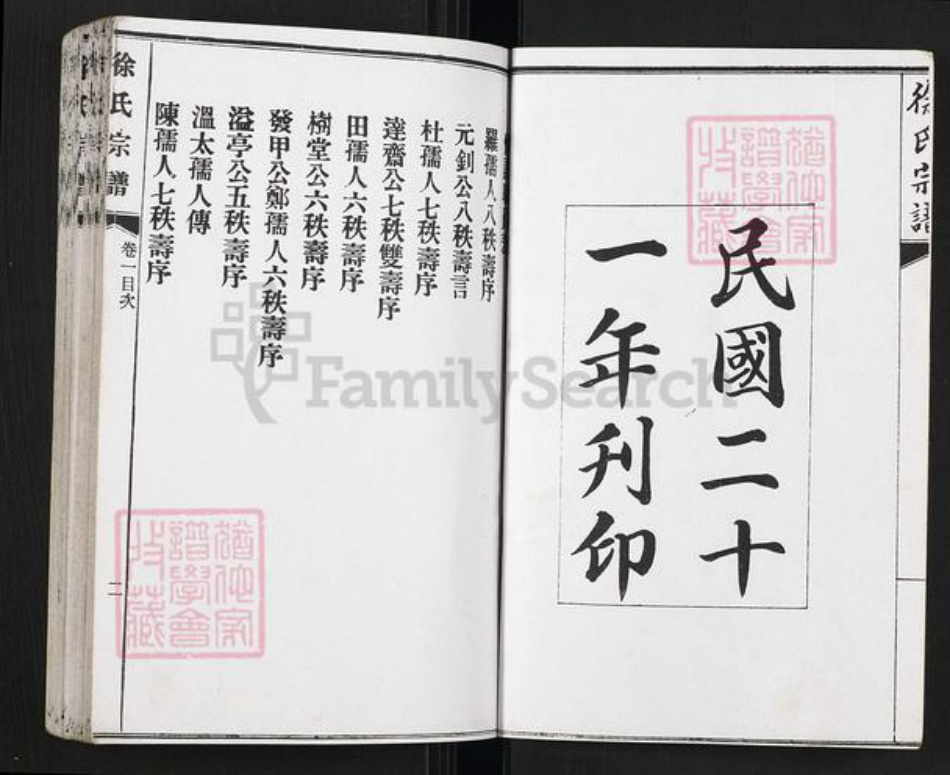 徐氏宗譜
民國二十
一年刊印
羅孺人八秩壽序
元釗公八秩壽言
杜孺人七秩壽序
達齋公七秩雙壽序
田孺人六秩壽序
樹堂公六秩壽序
發甲公鄭孺人六秩壽序
溢亭公五秩壽序
溫太孺人傳
陳孺人七秩壽序
徐氏宗譜
卷一目次
二
猶他家
譜學會
收藏
猶他家
譜學會
收藏
FamilySearch